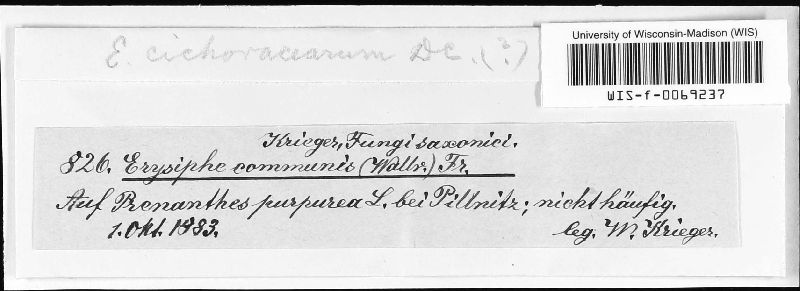 E. cichoracearum DC. (?)
University of Wisconsin-Madison (WIS)
WIS-f-0069237
Krieger, Fungi saxonici.
826. Erysiphe communis (Wallr.) Fr.
Auf Prenanthes purpurea L. bei Pillnitz; nicht häufig.
1. Okt. 1883. leg. W. Krieger.